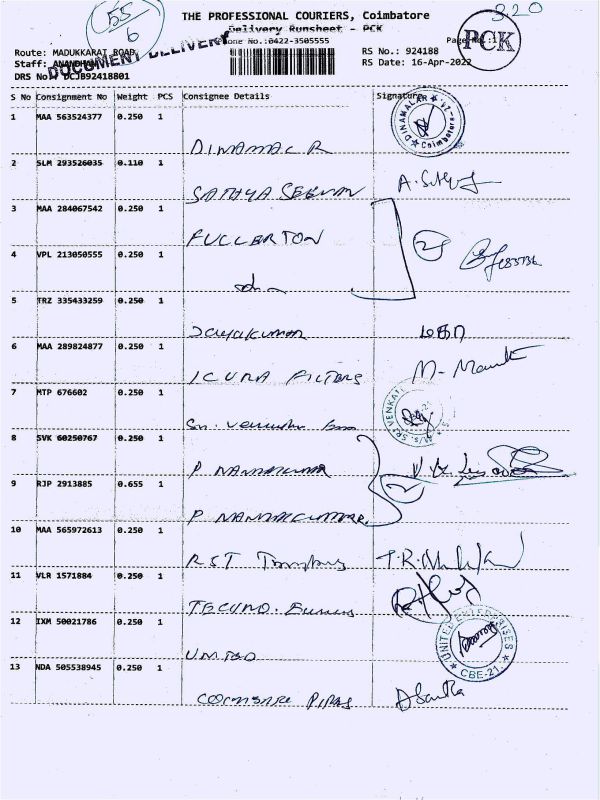 320
55
6
THE PROFESSIONAL COURIERS, Coimbatore
Delivery Runsheet - PCK
Phone No.:0422-3505555
Page No.:1
PCK
DOCUMENT DELIVERY
Route: MADUKKARAI ROAD,
RS No.: 924188
Staff:
RS Date: 16-Apr-2022
DRS No.: DCJB92418801
S No Consignment No Weight PCS Consignee Details Signature
1 MAA 563524377 0.250 1
DINAMALAR Coimbatore
DINAMALR
2 SLM 293526035 0.110 1
SATHYA SEELAN
3 MAA 284067542 0.250 1
FULLERTON
2
4 VPL 213050555 0.250 1
5 TRZ 335433259 0.250 1
Jayakumar
6 MAA 289824877 0.250 1
ICURA FILTERS
7 MTP 676602 0.250 1
M/s. SRI VENKAT
Sri.
8 SVK 60250767 0.250 1
P NANDAKUMAR
2
9 RJP 2913885 0.655 1
P NANDAKUMAR
10 MAA 565972613 0.250 1
RST
11 VLR 1571884 0.250 1
TECUMO.
12 IXM 50021786 0.250 1
UNITED ENTERPRISES
CBE-21.
UNITED
13 NDA 505538945 0.250 1
COIMBATORE PIPES